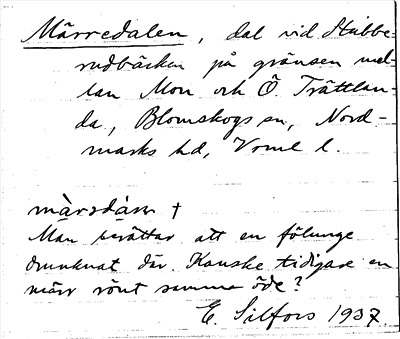 Märredalen, dal vid Stubbe-
rudbäcken på gränsen mel-
lan Mon och Ö. Trättlan-
da, Blomskogs sn, Nord-
marks hd, Vrml l.
Man berättar att en fölunge
drunknat där. Kanske tidigare en
märr rönt samma öde?
E. Silfors 1937